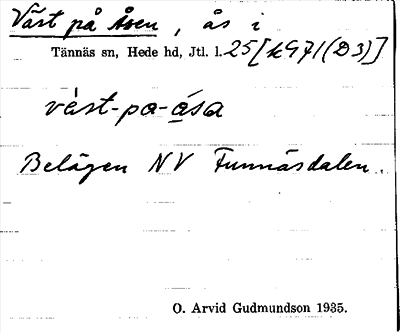 Väst på Åsen, ås i
Tännäs sn, Hede hd, Jtl. l. 25 [k G71 (D3)]
vàst-pa-ása
Belägen NV Funnäsdalen.
O. Arvid Gudmundson 1935.